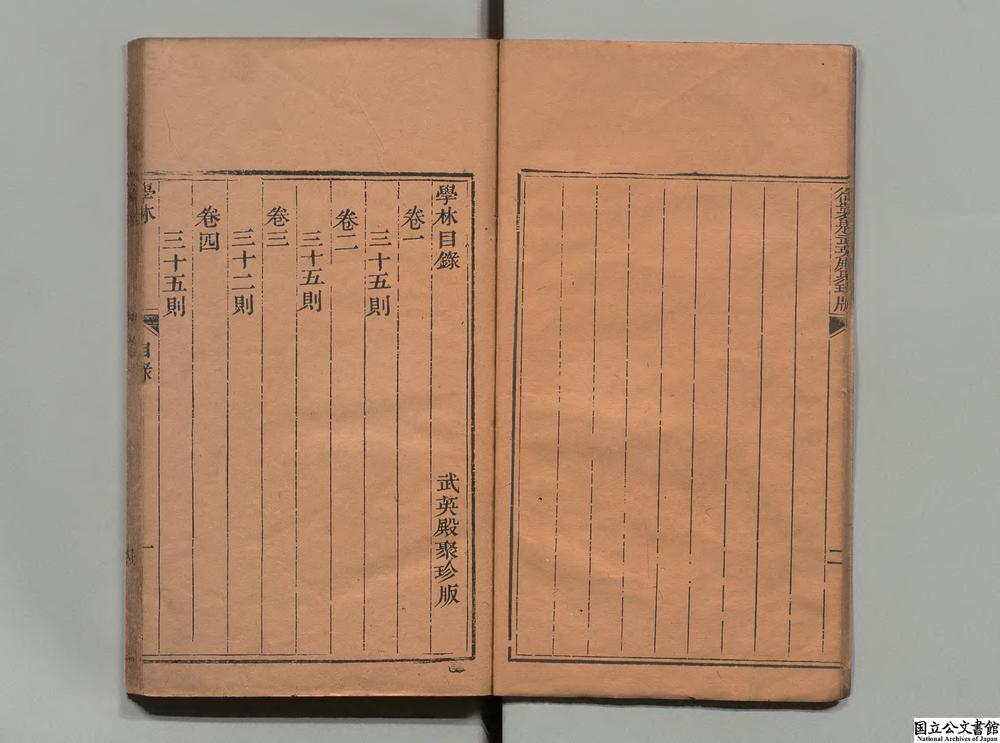 御製題武英殿聚珍版
二
學林目錄 武英殿聚珍版
卷一
三十五則
卷二
三十五則
卷三
三十二則
卷四
三十五則
學林 目錄 一
国立公文書館
National Archives of Japan